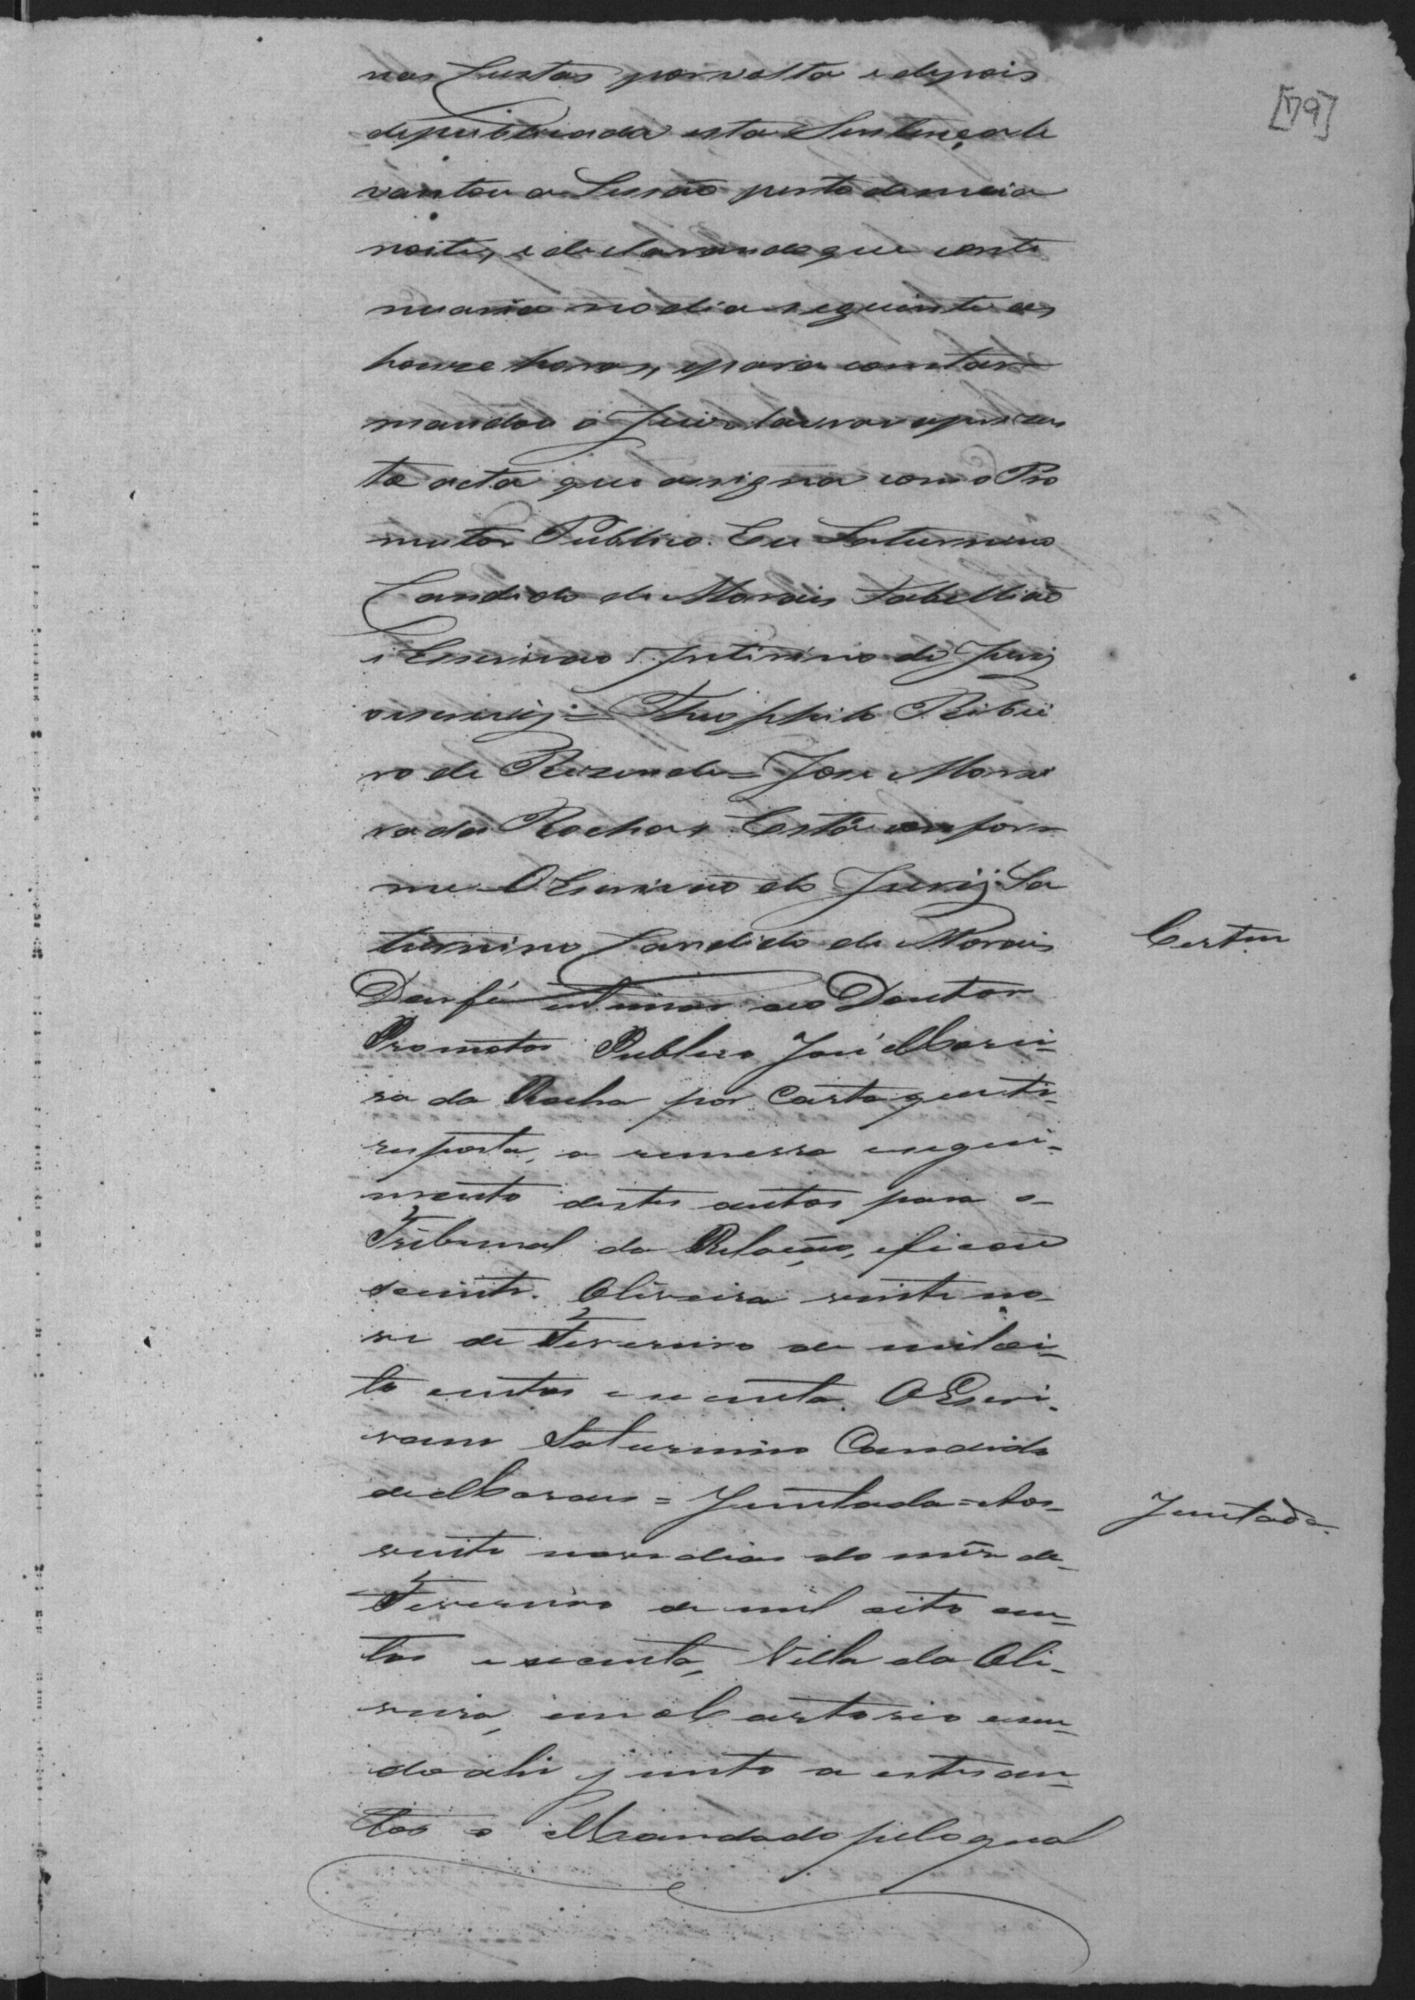 [79]
nas Custas por volta e depois
depublicada esta Sentença le
vantou a Sessão perto de meia
noite, e declarando que conti
nuaria no dia seguinte as
honze horas, e para constar
mandou o Juiz lavrar a presen
te acta que assigna com o Pro
mutor Publico. Eu Saturnino
Candido de Morais Tabellião
e Escrivão Interino do Jury
o escrevy = Theophilo Ribei
ro de Rezende = José Morei
ra da Rocha. Está confor
me O Escrivão do Jury Sa
turnino Candido de Morais
Certm
Dou fé intimar ao Doutor
Promotor Publico José Morei-
ra da Rocha por Carta que ti-
resposta, a remessa e segui-
mento destes autos para o
Tribunal da Relação, e ficou
sciente. Oliveira vinte no-
ve de Fevereiro de mil oi-
to centos e secenta. O Escri-
vam Saturnino Candido
de Morais = Juntada = Aos
Juntada.
vinte nove dias do mês de
Fevereiro de mil oito cen-
tos e secenta, Villa da Oli-
veira, em o Cartorio e sen-
do ahi junto a estes au-
tos o Mandado pelo qual